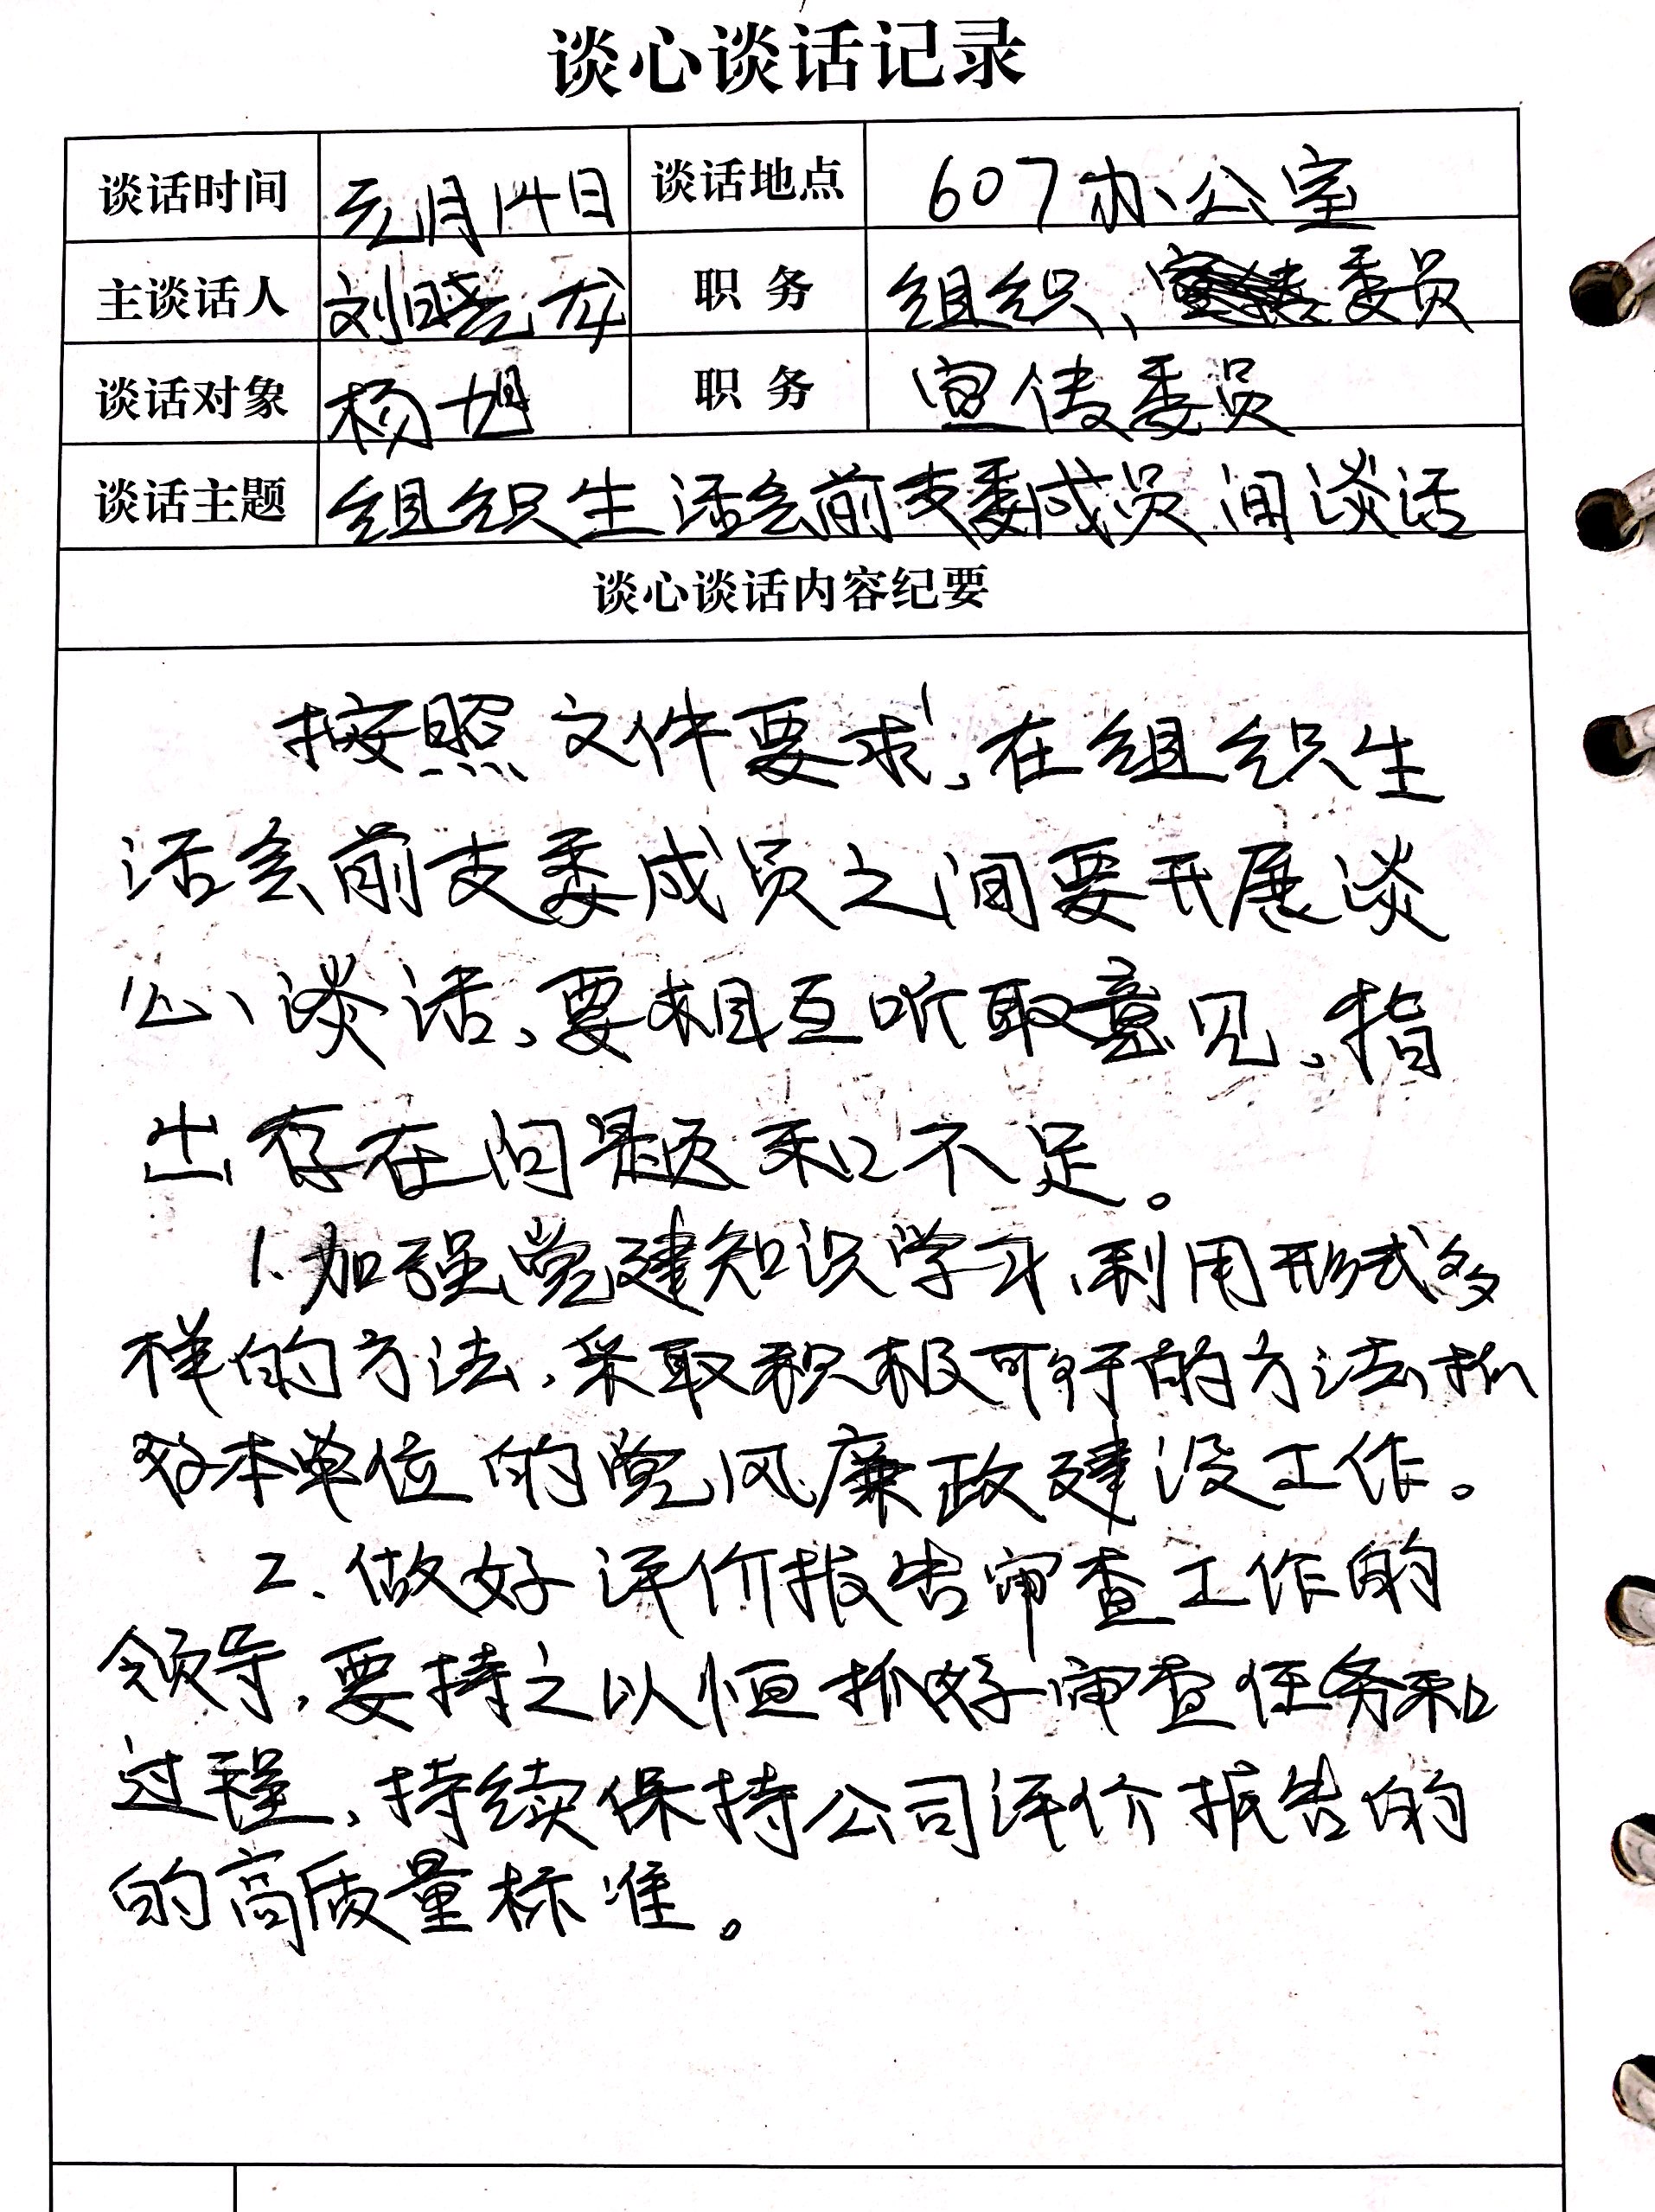 谈心谈话记录
谈话时间 元月14日 谈话地点 607办公室
主谈话人 刘晓龙 职务 组织、委员
谈话对象 杨旭 职务 宣传委员
谈话主题 组织生活会前支委成员间谈话
谈心谈话内容纪要
按照文件要求,在组织生
活会前支委成员之间要开展谈
心谈话,要相互听取意见,指
出存在问题和不足。
1.加强党建知识学习,利用形式多
样的方法,采取积极可行的方法抓
好本单位的党风廉政建设工作。
2.做好评价报告审查工作的
领导,要持之以恒抓好审查任务和
过程,持续保持公司评价报告的
的高质量标准。